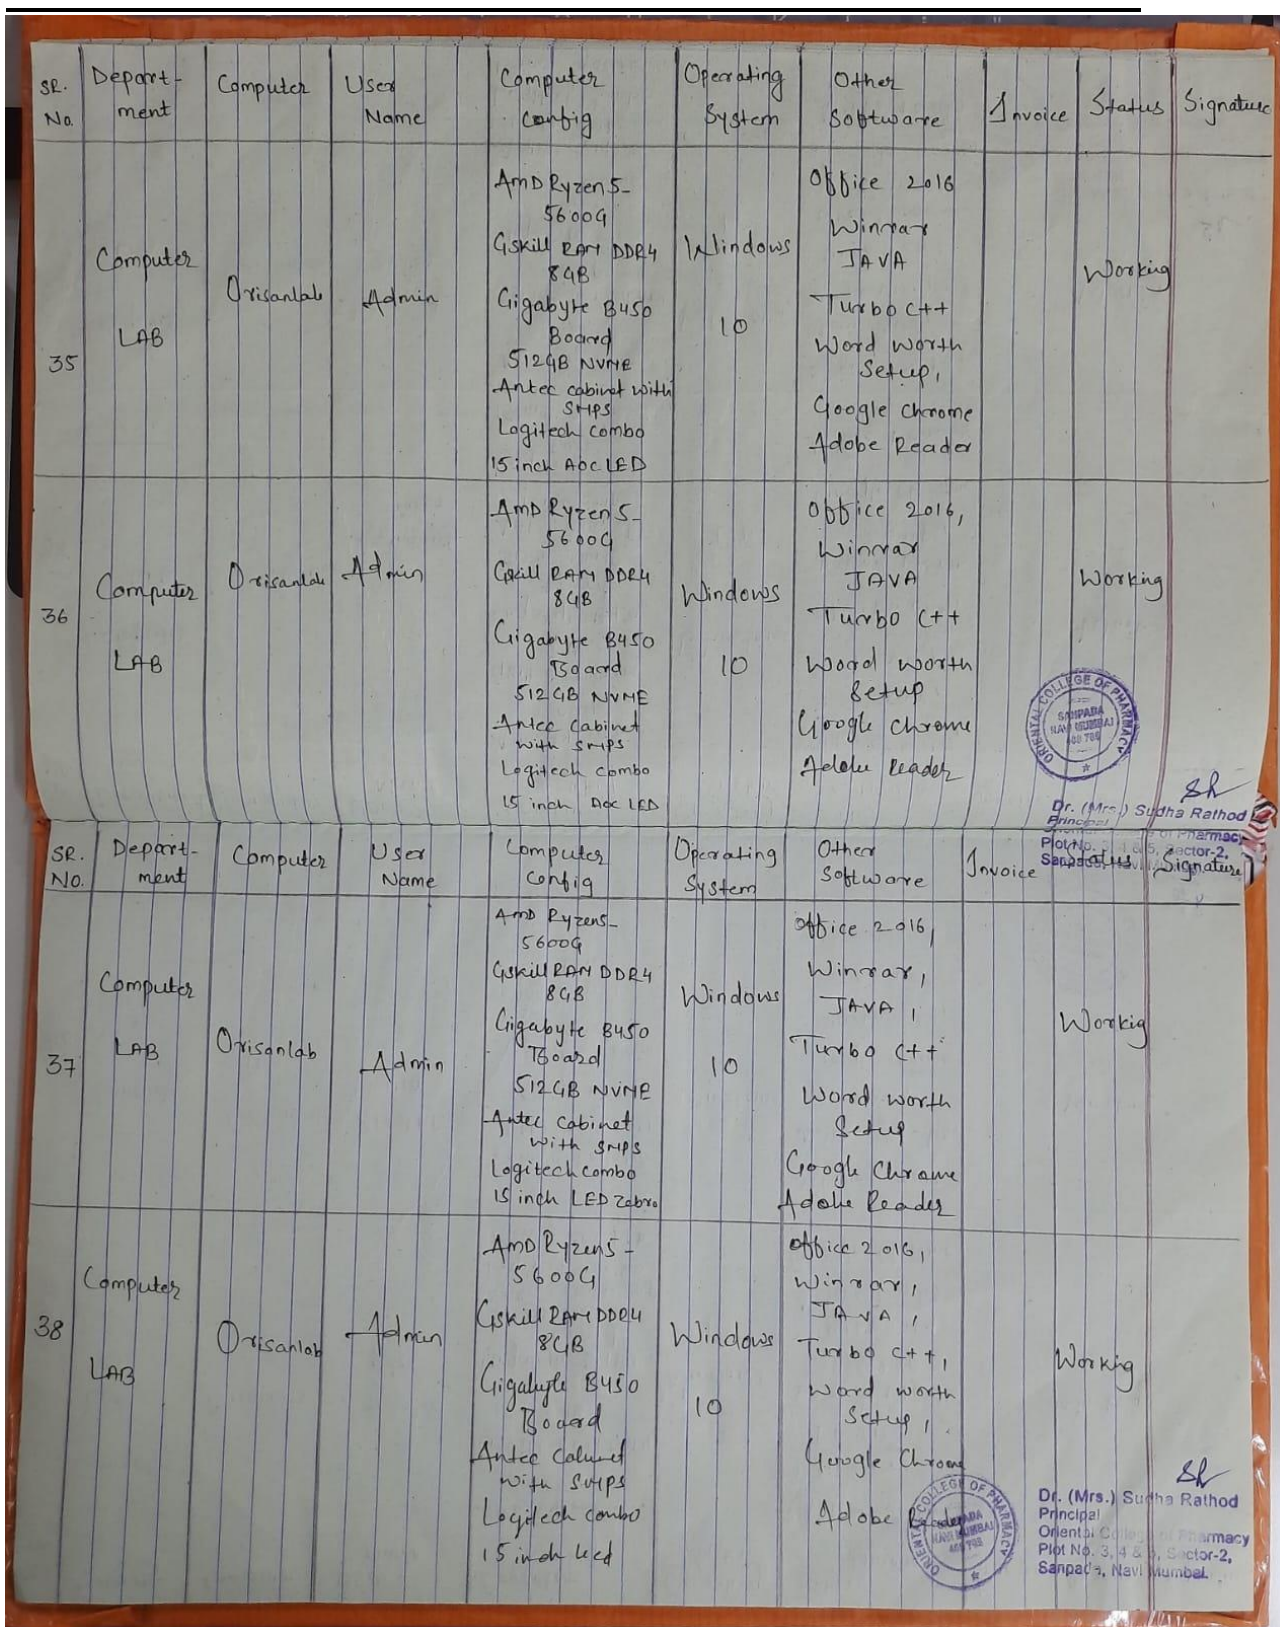 SR. No. Depart-ment Computer User Name Computer Config Operating System Other Software Invoice Status Signature
35
Computer
LAB
Orisanlab
Admin
AMD Ryzen 5-
5600G
Gskill RAM DDR4
8GB
Gigabyte B450
Board
512GB NVME
Antec cabinet with
SMPS
Logitech combo
15 inch AOC LED
Windows
10
Office 2016
Winrar
JAVA
Turbo C++
Word worth
Setup,
Google Chrome
Adobe Reader
Working
36
Computer
LAB
Orisanlab
Admin
AMD Ryzen 5-
5600G
Gskill RAM DDR4
8GB
Gigabyte B450
Board
512GB NVME
Antec Cabinet
with SMPS
Logitech combo
15 inch AOC LED
Windows
10
Office 2016,
Winrar
JAVA
Turbo C++
Word worth
Setup
Google Chrome
Adobe Reader
Working
ORIENTAL COLLEGE OF PHARMACY
SANPADA
NAVI MUMBAI
Dr. (Mrs.) Sudha Rathod
Principal
of Pharmacy
Plot No. 3, 4 & 5, Sector-2,
Sanpada,
SR. NO. Depart-ment Computer User Name Computer Config Operating System Other Software Invoice Status Signature
37
Computer
LAB
Orisanlab
Admin
AMD Ryzen5-
5600G
Gskill RAM DDR4
8GB
Gigabyte B450
Board
512GB NVME
Antec cabinet
with SMPS
Logitech combo
15 inch LED Zebro
Windows
10
office 2016,
Winrar,
JAVA,
Turbo C++
Word worth
Setup
Google Chrome
Adobe Reader
Workig
38
Computer
LAB
Orisanlab
Admin
AMD Ryzen5-
5600G
Gskill RAM DDR4
8GB
Gigabyte B450
Board
Antec Cabinet
with SMPS
Logitech combo
15 inch Led
Windows
10
office 2016,
Winrar,
JAVA,
Turbo C++,
Word worth
Setup,
Google Chrome
Adobe Reader
Working
ORIENTAL COLLEGE OF PHARMACY
SANPADA
NAVI MUMBAI
Dr. (Mrs.) Sudha Rathod
Principal
Oriental College of Pharmacy
Plot No. 3, 4 & 5, Sector-2,
Sanpada, Navi Mumbai.